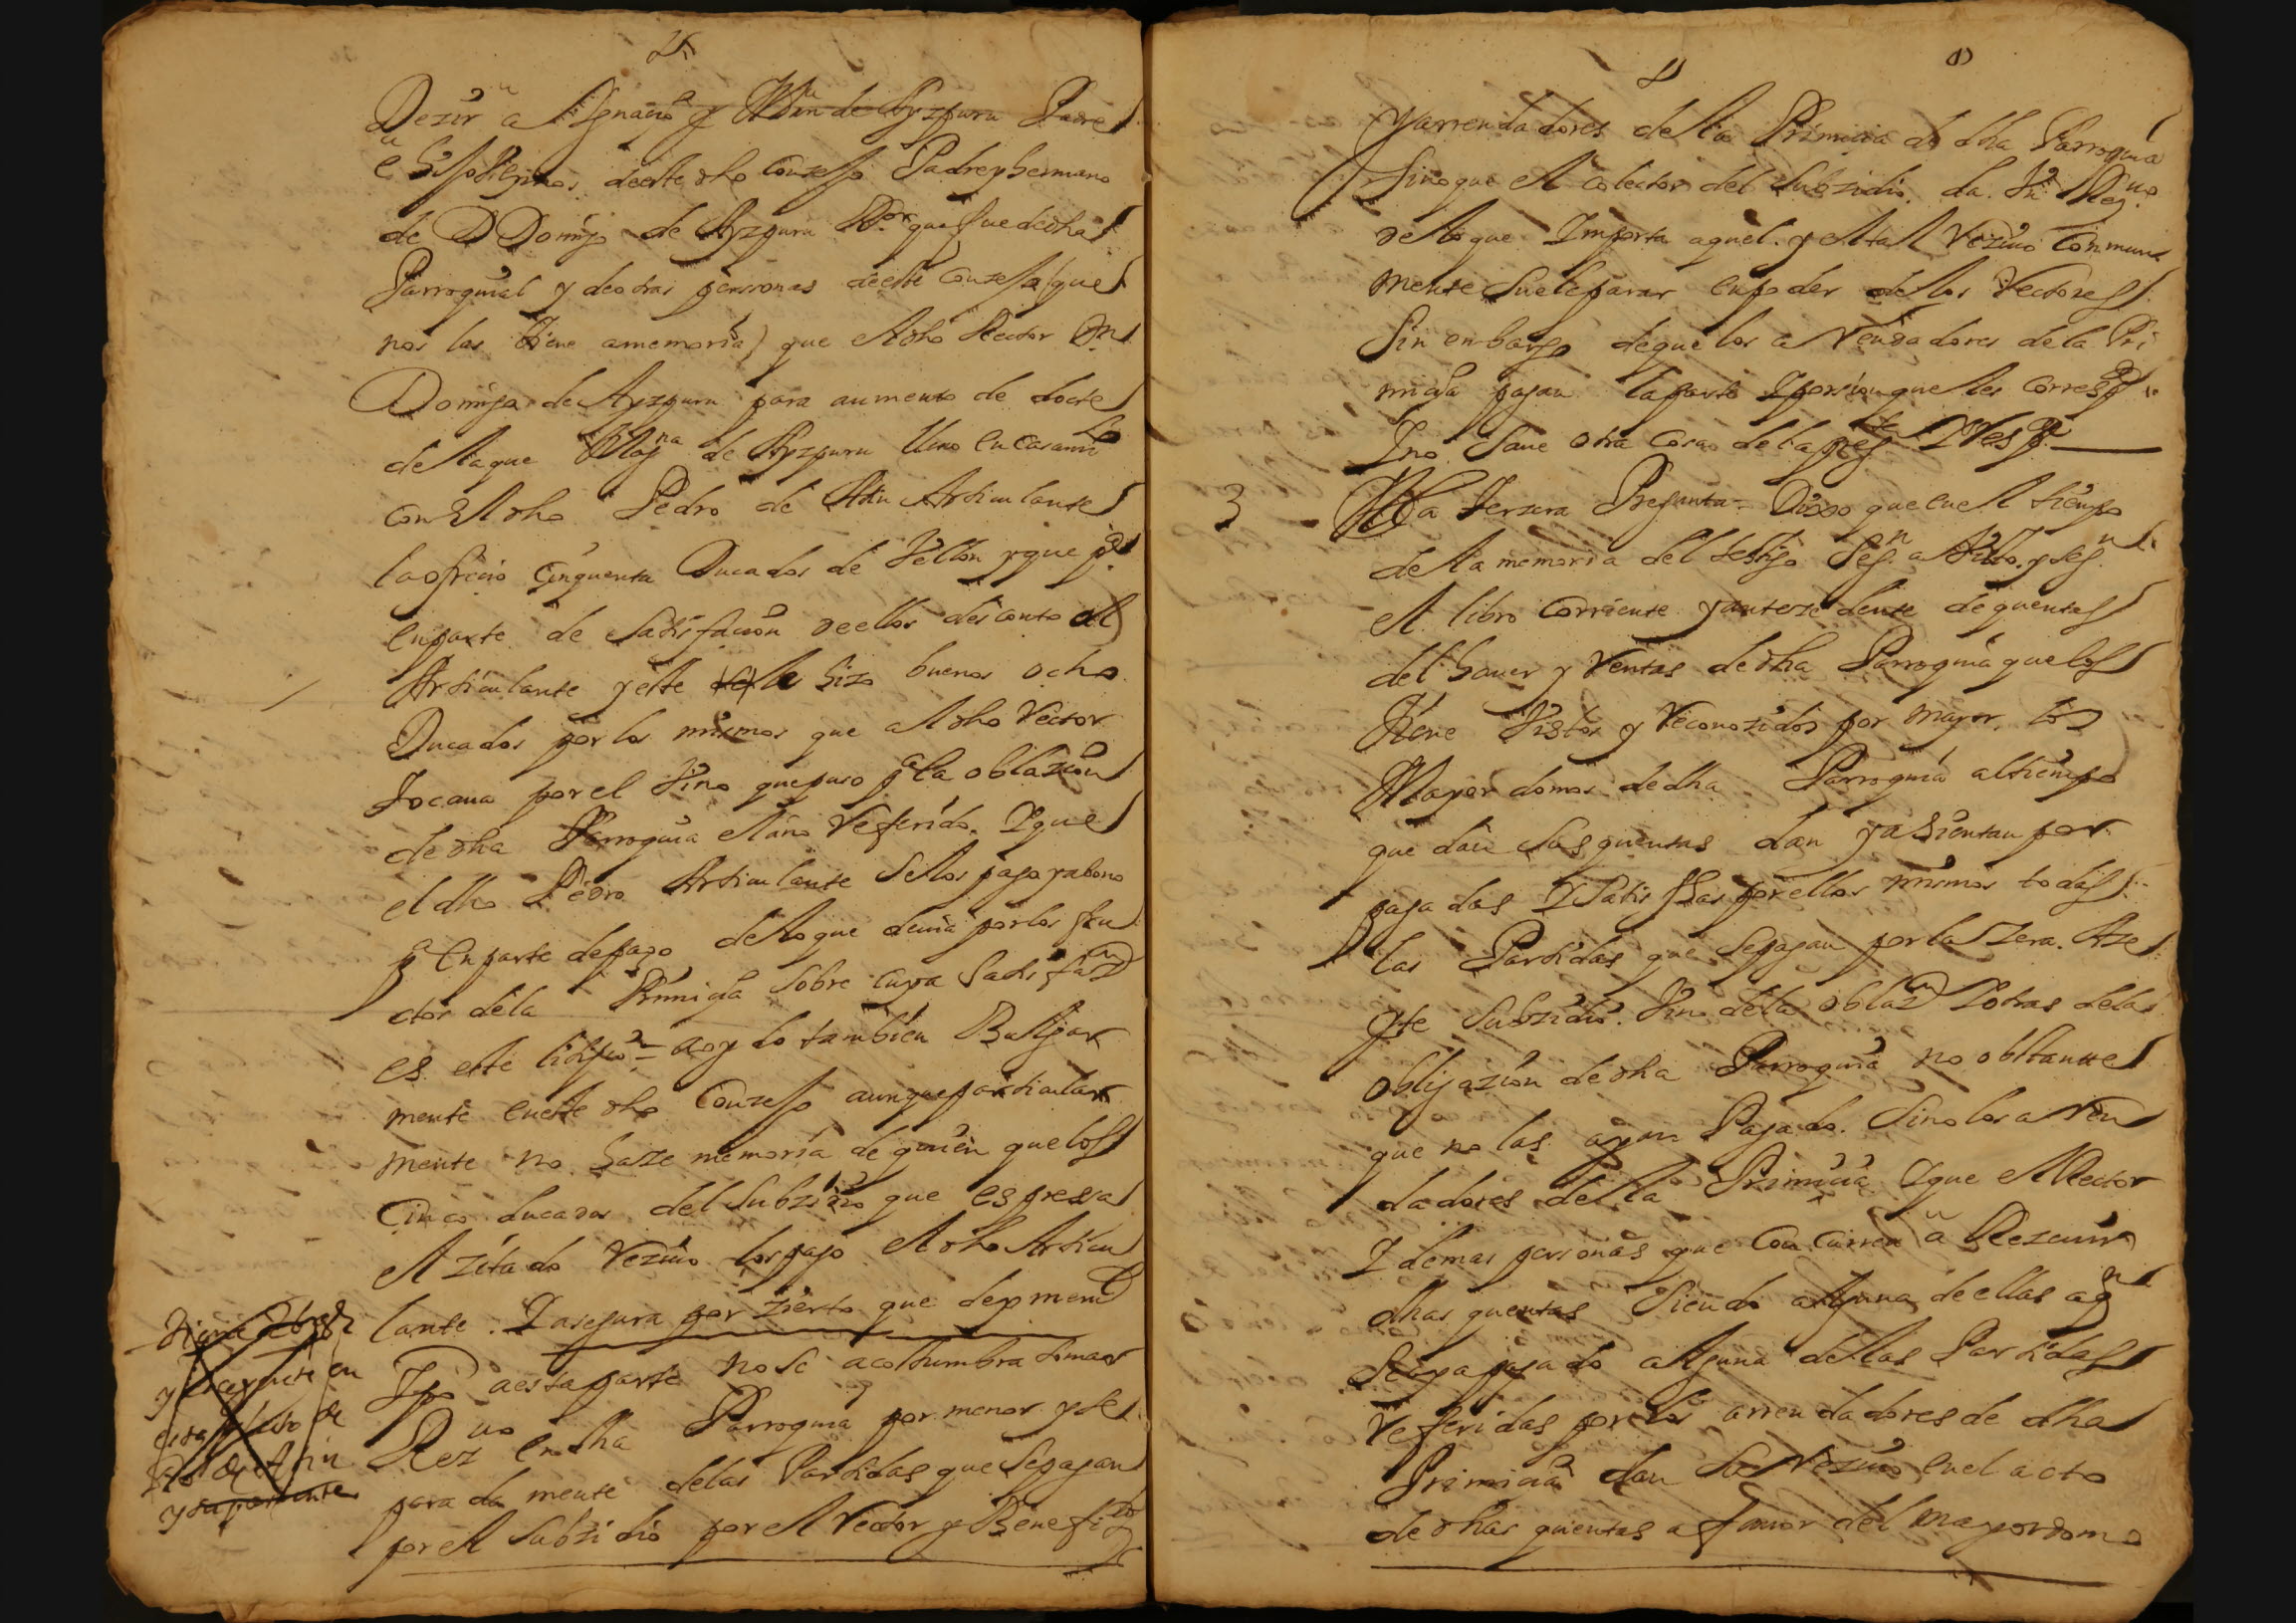 Dezir a Ygnacio y Mrn de Ayzpuru Padre
e hijo vezinos deeste dho Conzejo Padre y hermano
de D Domingo de Ayzpuru Ror que fue de dha
Parroquial y de otras personas deeste Conzejo (que
nos las tiene amemoria) que el dho Rector Dn
Domingo de Ayzpuru para aumento de docte
de la que Magna de Ayzpuru llevo en Casamto
con el dho Pedro de Atin Articulante
la ofrecio Cinquenta Ducados de Vellon y que pa
en parte de Satisfacion de ellos desconto al
Articulante y este le hizo buenos ocho
Ducados por los mismos que al dho Rector
tocaua por el Vino que puso pa la oblazion
de dha Parroquia el año referido. Y que
el dho Pedro Articulante se los pago y abono
pa en parte de pago de lo que deuia por los fru
ctos de la Primicia sobre cuya Satisfazn
es este litijio = a oydo tambien Bulgar
mente en este dho Conzejo aunque particular
mente no haze memoria de quien que los
Cinco ducados del Subzidio que espresa
el zitado Vezino los pago el dho Articu
lante. Y asegura por zierto que de pmento
tpo aesta parte no se acostumbra tomar
Rezuo en dha Parroquia por menor y se
para da mente de las Partidas que se pagan
por el Subzidio por el Rector y Benefizdos
y en
y su parte
y arrendadores de la Primicia de dha Parroquia
sino que el Colector del Subzidio da Rezuo
de lo que Importa aquel y el tal Vezino Conmun
mente suele parar en poder de los Rectores
sin enbargo de que los arrendadores de la Pri
micia pagan la parte y porcion que les corresp
Y no saue otra Cosa de la pregta Y resp
3 A la terzera Pregunta = Dixo que en el tiempo
de la memoria del testigo Segn a Visto y segn
el libro Corriente y antezedente de quentas
del hauer y Rentas de dha Parroquia que los
tiene Vistos y reconozidos por mayor, los
Mayordomos de dha Parroquia al tiempo
que dan sus quentas dan y asientan por
pagadas y Satisfhas por ellos mismos todas
las Partidas que se pagan por la Zera. Aze
yte Subzidio. Vino de la oblazn y otras de la
obligazion de dha Parroquia no obstante
que no las ayan Pagado. Sino los arren
dadores de la Primicia y que el Rector
y demas personas que Concurren a Rezeuir
dhas quentas siendo alguna de ellas a qn
se aya pagado alguna de las Partidas
referidas por los arrendadores de dha
Primicia dan su Rezuio en el acto
de dhas quentas a fauor del mayordomo